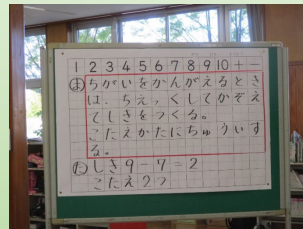 1 2 3 4 5 6 7 8 9 10 + −
ま ちがいをかんがえるとき
は、ちえっくしてかぞえ
てしきをつくる。
こたえかたにちゅういす
る。
た しき9−7=2
こたえ2つ